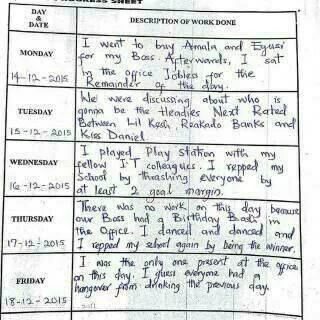 PROGRESS SHEET
DAY & DATE
DESCRIPTION OF WORK DONE
MONDAY
14-12-2015
I went to buy Amala and Egusi
for my Boss. Afterwards, I sat
in the office Jobless for the
Remainder of the day.
TUESDAY
15-12-2015
We were discussing about who is
gonna be the Headies Next Rated
Between Lil Kesh, Reekado Banks and
Kiss Daniel
WEDNESDAY
16-12-2015
I played Play Station with my
fellow I.T colleagues. I repped my
School by thrashing everyone by
at least 2 goal margin.
THURSDAY
17-12-2015
There was no work on this day because
our Boss had a Birthday Bash in
the Office. I danced and danced and
I repped my school again by being the winner.
FRIDAY
18-12-2015
I was the only one present at the office
on this day. I guess everyone had a
hangover from drinking the previous day.